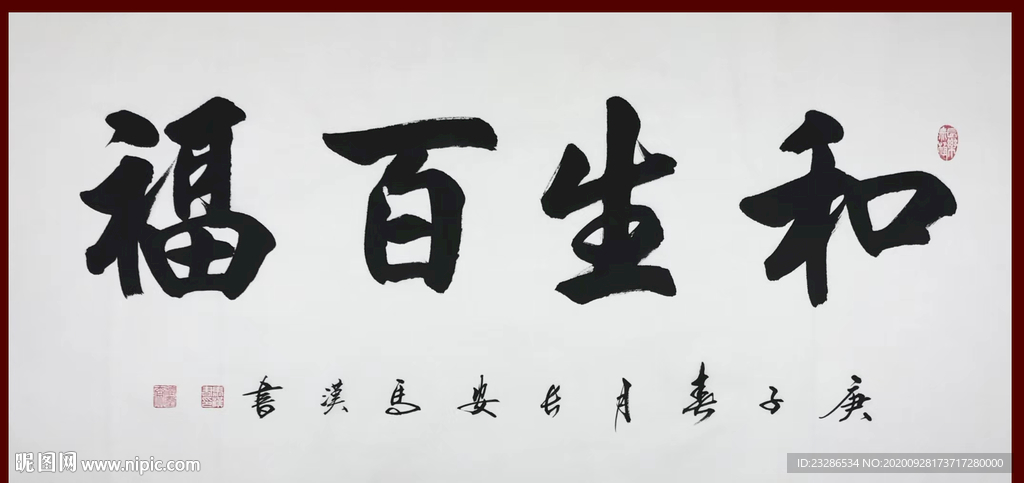 和生百福
庚子春月长安马漢書
昵图网 www.nipic.com
ID:23286534 NO:20200928173717280000